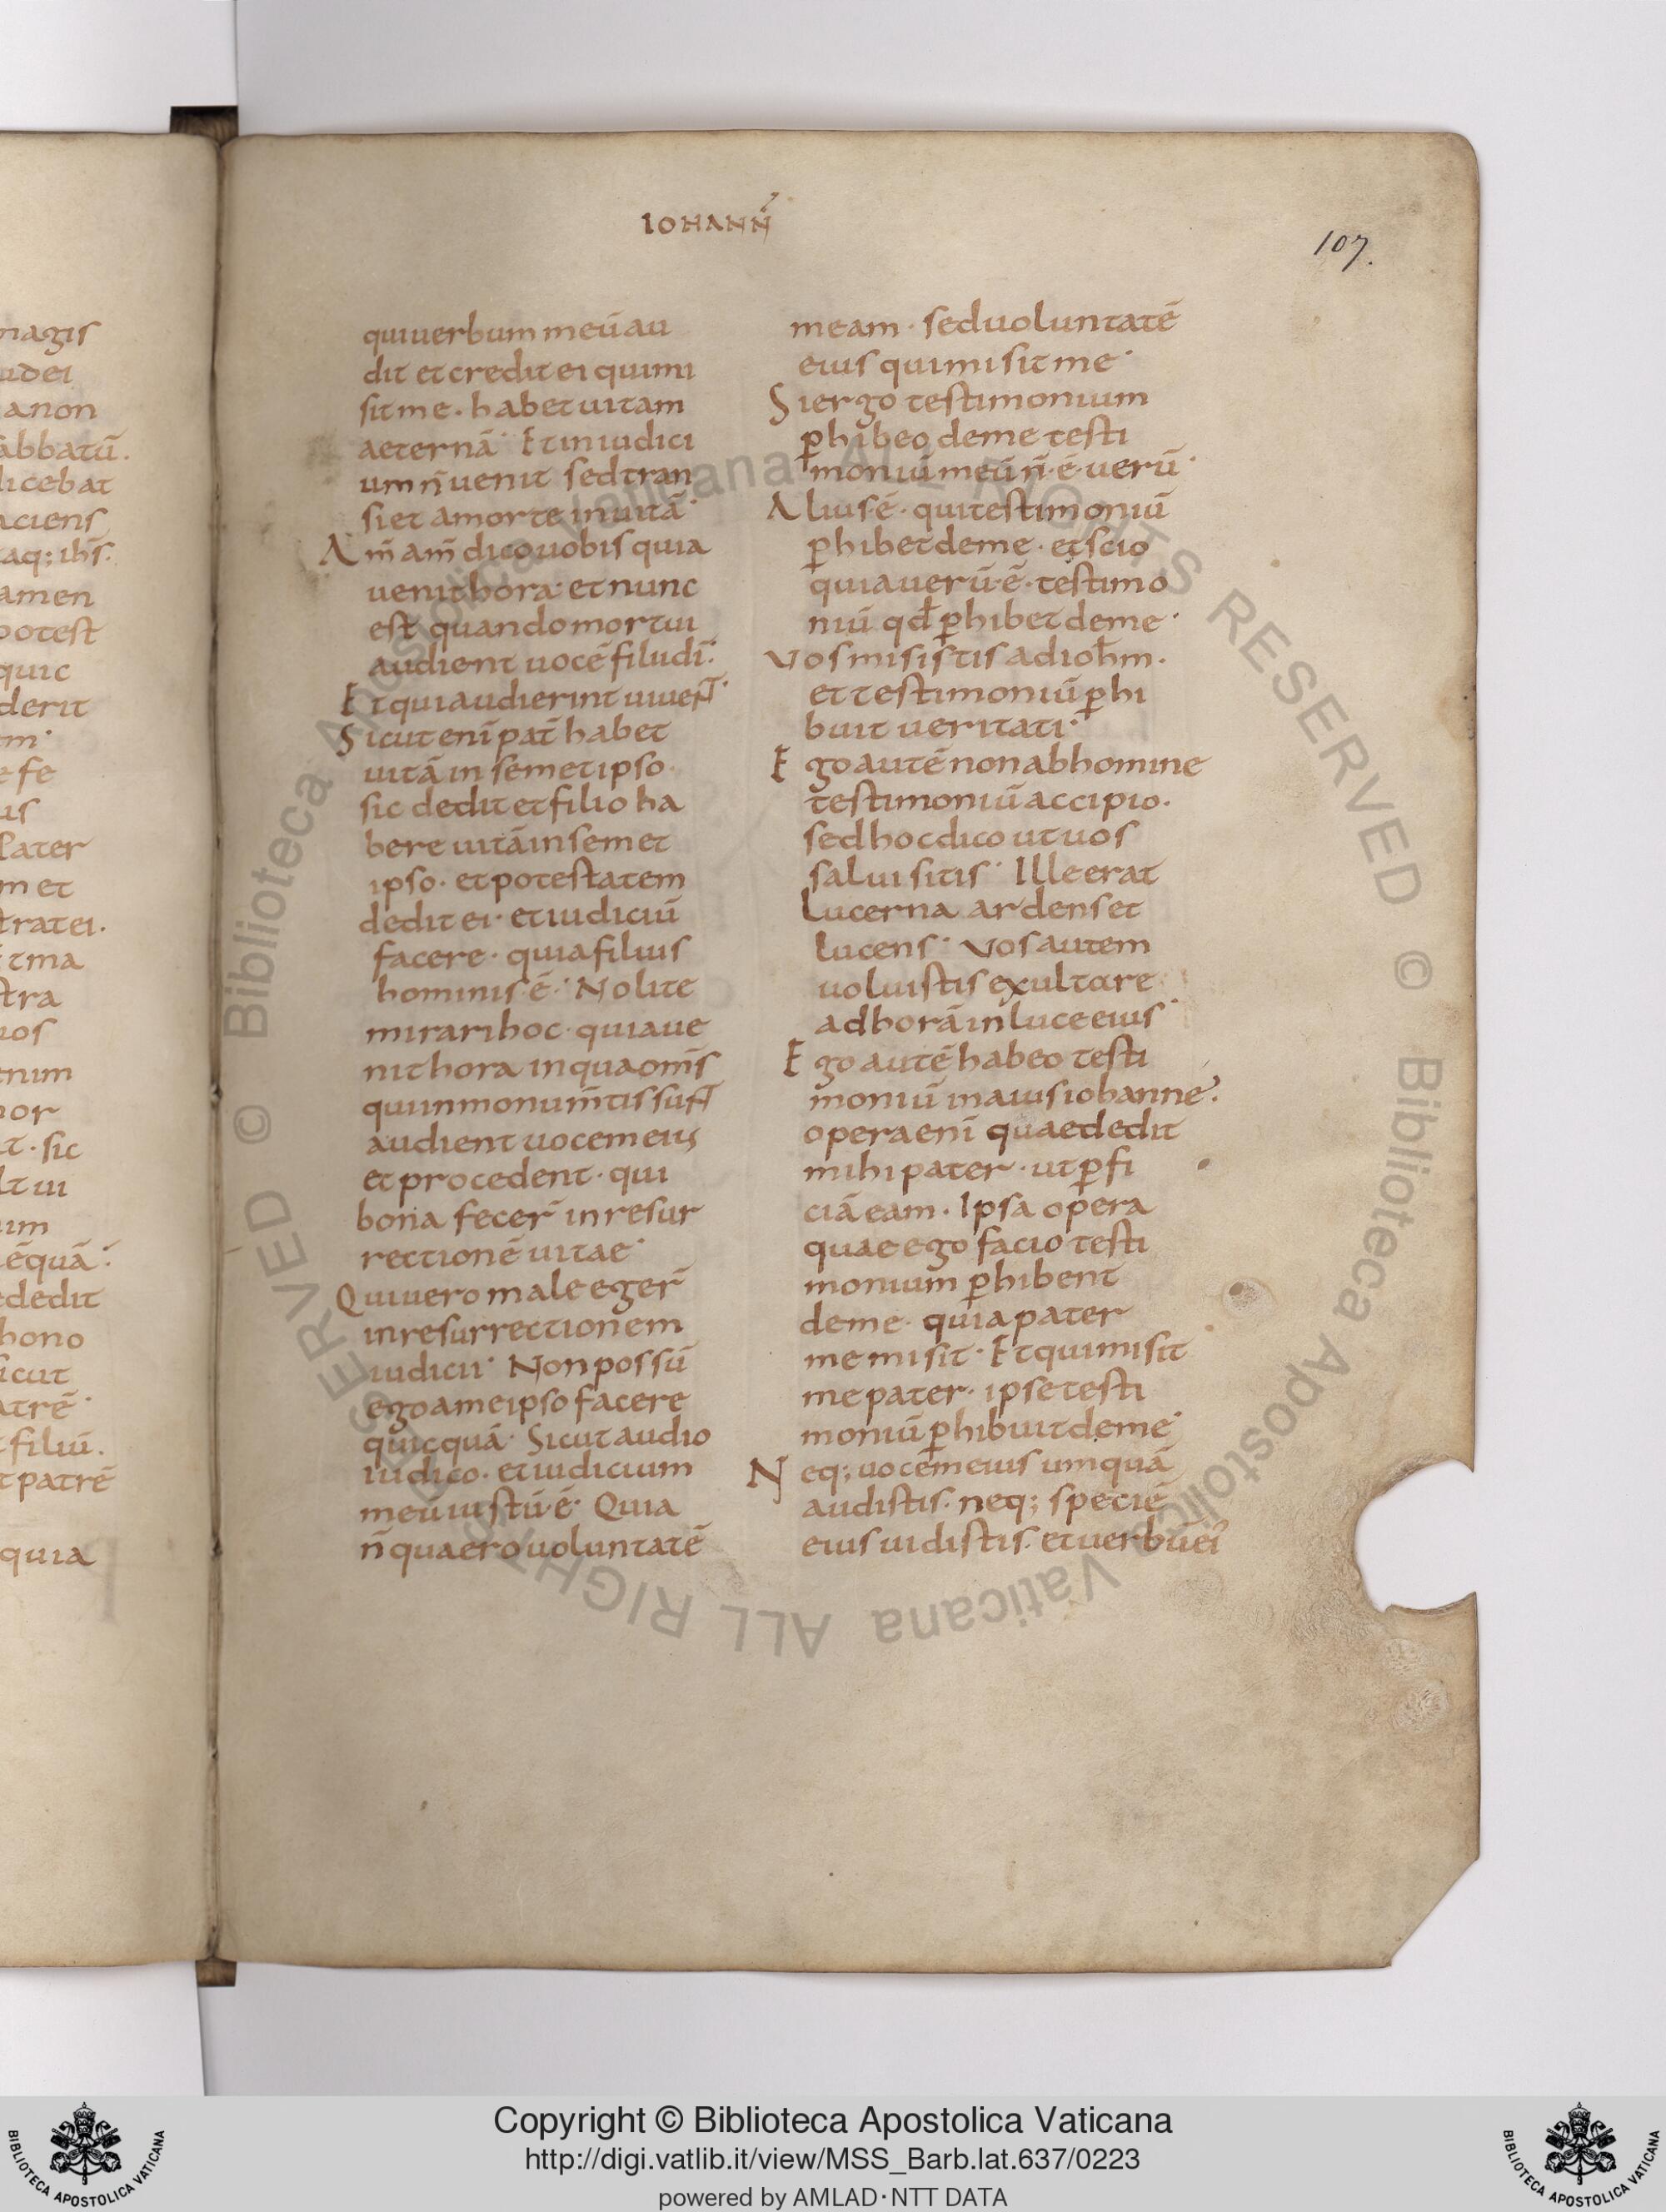 IOHANN̄
107.
qui uerbum meū au
dit et credit ei qui mi
sit me · habet uitam
aeternā · Et in iudici
um n̄ uenit sed tran
siet a morte in uitā ·
Am̄ am̄ dico uobis quia
uenit hora · et nunc
est quando mortui
audient uocē filii dī ·
Et qui audierint uiuent ·
Sicut enī pat̄ habet
uitā in semetipso ·
sic dedit et filio ha
bere uitā in semet
ipso · et potestatem
dedit ei · et iudiciū
facere · quia filius
hominis · ē · Nolite
mirari hoc · quia ue
nit hora in qua om̄s
qui in monum̄tis sunt
audient uocem eius
et procedent · qui
bona fecer̄ in resur
rectionē uitae ·
Qui uero male eger̄
in resurrectionem
iudicii · Non possū
ego a me ipso facere
quicquā · Sicut audio
iudico · et iudicium
meū iustū · ē · Quia
n̄ quaero uoluntatē
meam · sed uoluntatē
eius qui misit me ·
Si ergo testimonium
ꝑhibeo de me testi
moniū meū n̄ · ē · uerū ·
Alius · ē · qui testimoniū
ꝑhibet de me · et scio
quia uerū · ē · testimo
niū qđ ꝑhibet de me ·
Vos misistis ad ioh̄m ·
et testimoniū ꝑhi
buit ueritati ·
Ego autē non ab homine
testimoniū accipio ·
sed hoc dico ut uos
salui sitis · Ille erat
Lucerna ardens et
lucens · Vos autem
uoluistis exultare
ad horā in luce eius ·
Ego autē habeo testi
moniū maius iohanne ·
opera enī quae dedit
mihi pater · ut ꝑfi
ciā eam · Ipsa opera
quae ego facio testi
monium ꝑhibent
de me · quia pater
me misit · Et qui misit
me pater · ipse testi
moniū ꝑhibuit de me ·
Neq; uocem eius umquā
audistis · neq; speciē
eius uidistis · et uerbū ei'
magis
udei
a non
abbatū .
dicebat
aciens
taq; ihs̄ ·
amen
potest
quic
derit
m ·
e fe
us
Pater
m et
stratei .
t ma
stra
uos
enim
mor
t · sic
lt ui
um
ē quā :
e dedit
hono
sicut
atrē ·
t filiū .
t patrē
quia
© Biblioteca Apostolica Vaticana ALL RIGHTS RESERVED © Biblioteca Apostolica Vaticana ALL RIGHTS RESERVED
Copyright © Biblioteca Apostolica Vaticana
http://digi.vatlib.it/view/MSS_Barb.lat.637/0223
powered by AMLAD·NTT DATA
BIBLIOTECA APOSTOLICA VATICANA
BIBLIOTECA APOSTOLICA VATICANA